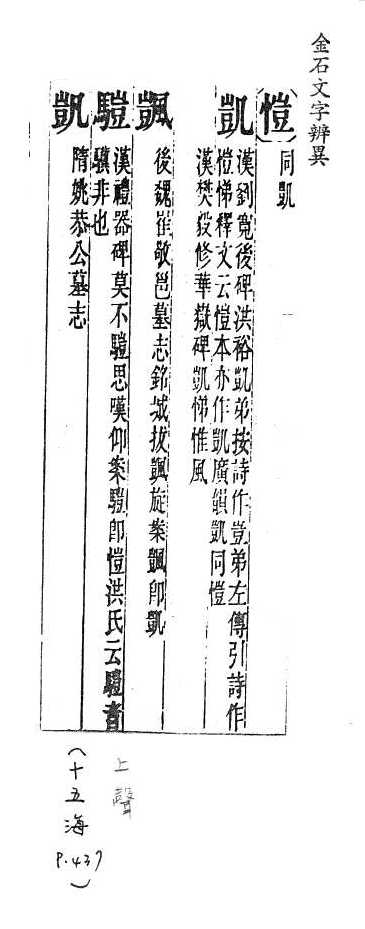 金石文字辨異
愷
同凱
凱
漢劉寬後碑洪裕凱弟按詩作豈弟左傳引詩作
愷悌釋文云愷本亦作凱廣韻凱同愷
漢樊毅修華嶽碑凱悌惟風
颽
後魏崔敬邕墓志銘城拔颽旋案颽即凱
䮗
漢禮器碑莫不䮗思嘆仰案䮗即愷洪氏云䮗者
驥非也
凱
隋姚恭公墓志
上聲
(十五海
P.437)